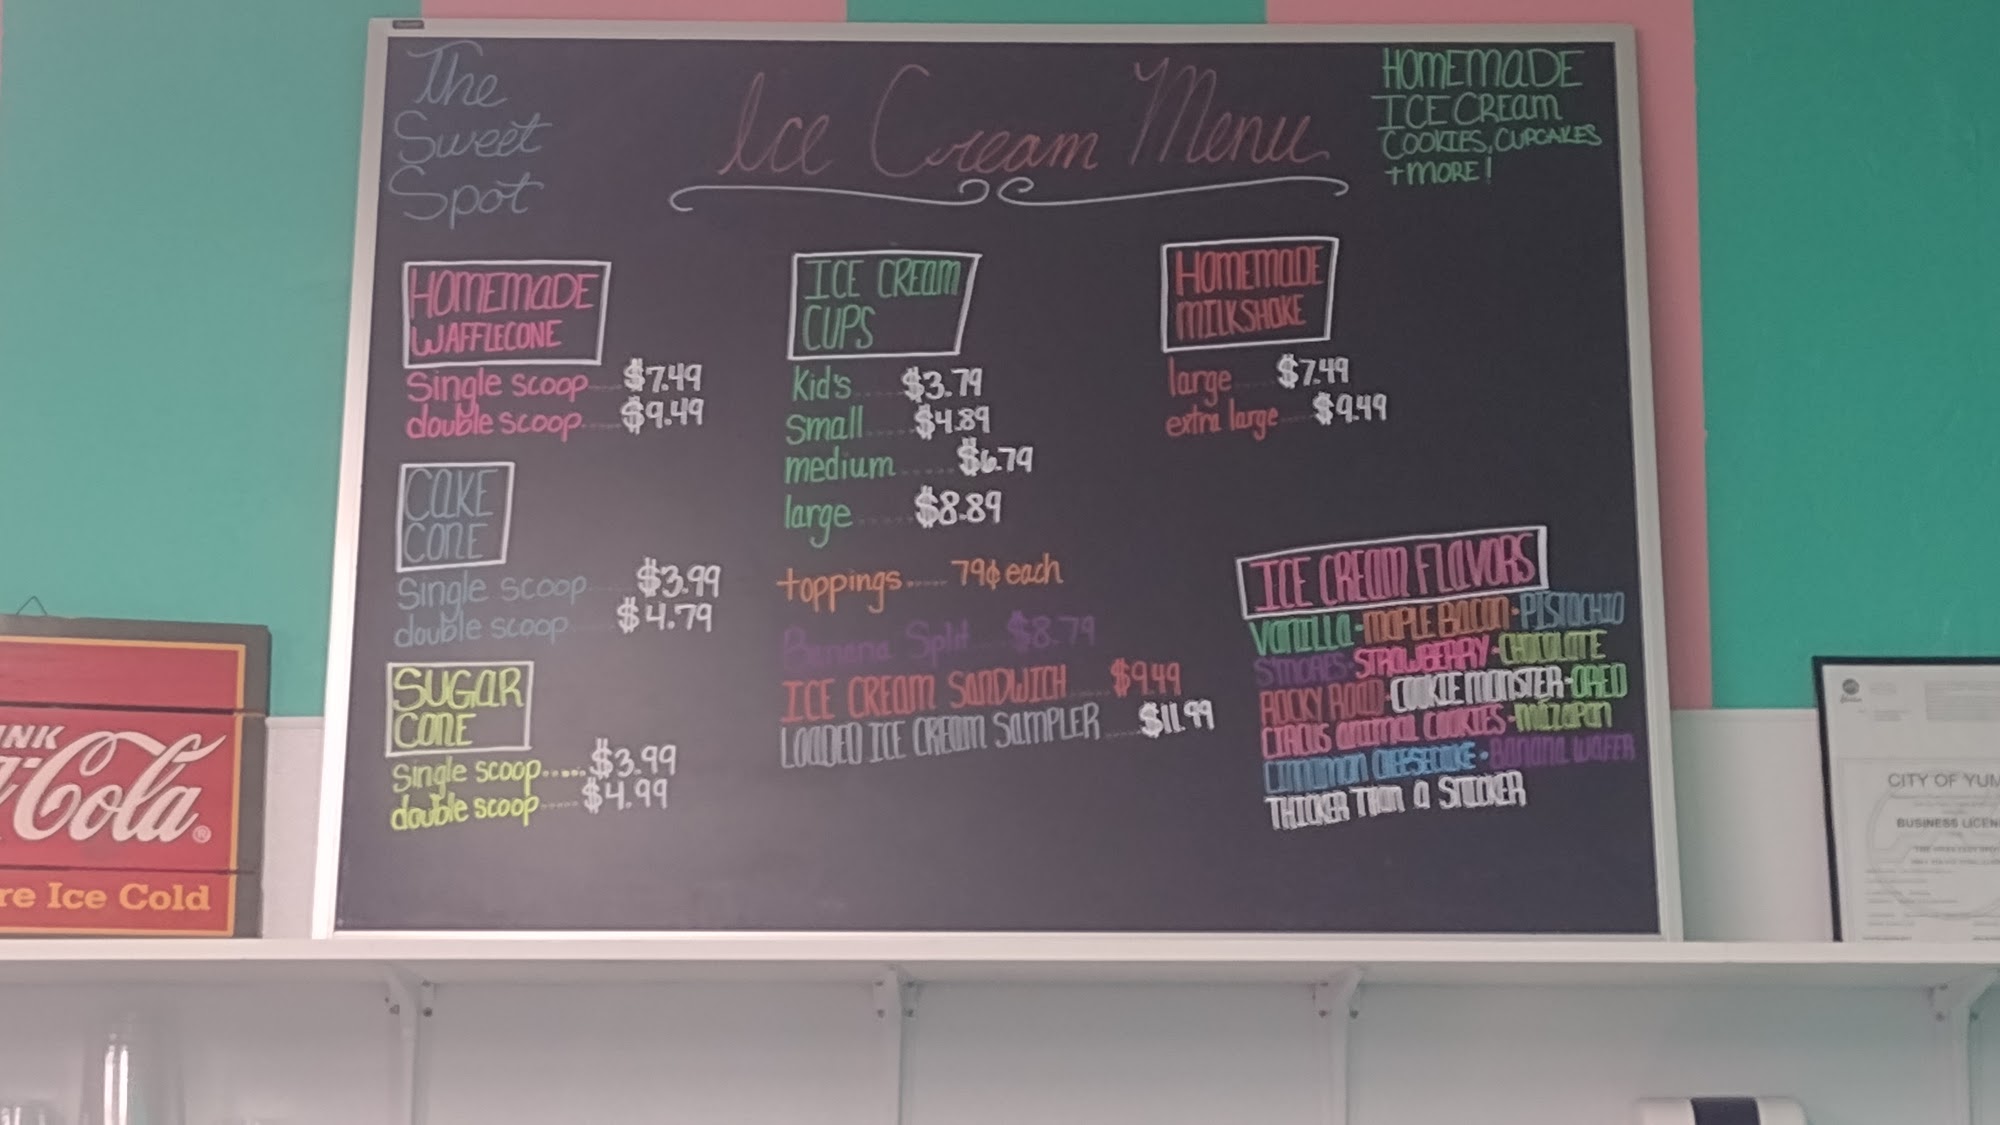 The
Sweet
Spot
Ice Cream Menu
HOMEMADE
ICE CREAM
COOKIES, CUPCAKES
+ MORE!
HOMEMADE
WAFFLECONE
Single scoop.....$7.49
double scoop.....$9.49
CAKE
CONE
Single scoop.....$3.99
double scoop.....$4.79
SUGAR
CONE
Single scoop......$3.99
double scoop.....$4.99
ICE CREAM
CUPS
kid's.....$3.79
Small.....$4.89
medium.....$6.79
large.....$8.89
toppings..... 79¢ each
Banana Split....$8.79
ICE CREAM SANDWICH....$9.49
LOADED ICE CREAM SAMPLER....$11.99
HOMEMADE
MILKSHAKE
large....$7.49
extra large....$9.49
ICE CREAM FLAVORS
VANILLA-MAPLE BACON-PISTACHIO
S'MORES-STRAWBERRY-CHOCOLATE
ROCKY ROAD-COOKIE MONSTER-OREO
CIRCUS ANIMAL COOKIES-MAZAPAN
CINNAMON CHEESECAKE-BANANA WAFER
THICKER THAN A SNICKER
INK
Cola
re Ice Cold
CITY OF YUM
BUSINESS LICEN